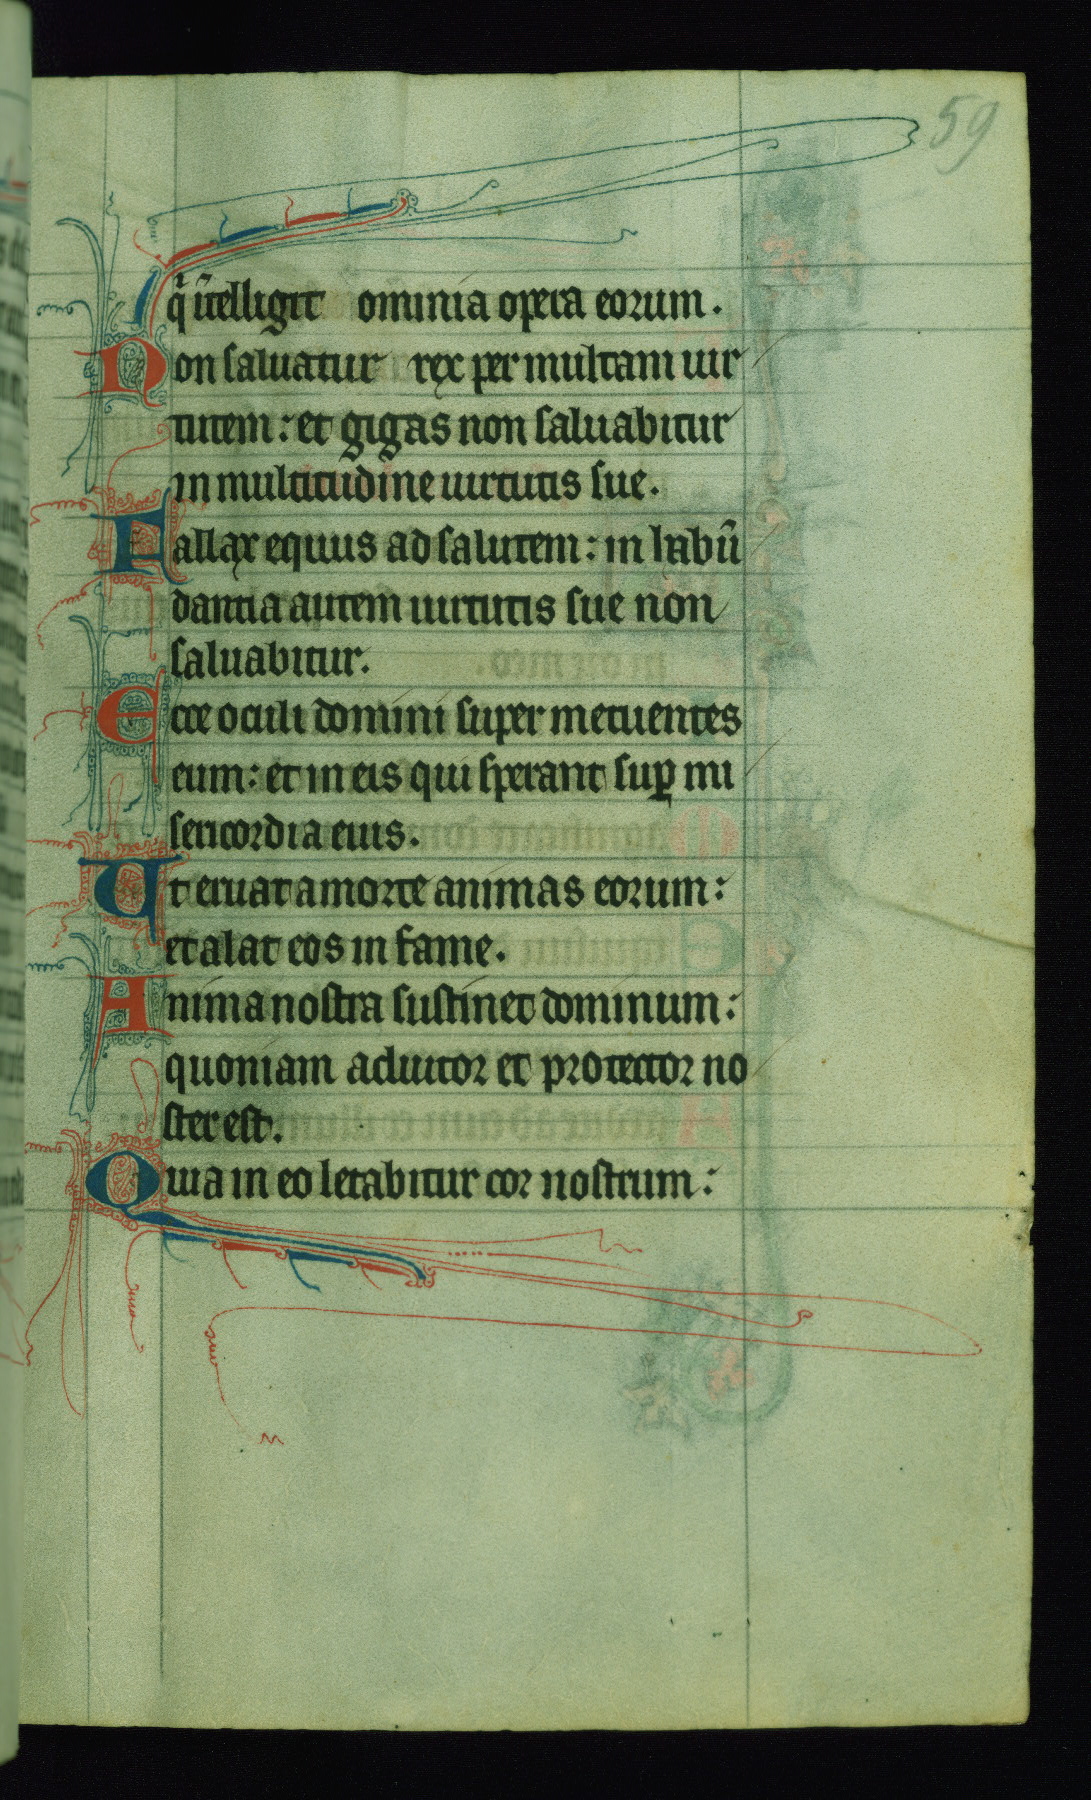 59
qͥ ītelligit omnia opera eorum.
Non saluatur rex per multam uir
tutem: et gigas non saluabitur
in multitudine uirtutis sue.
Fallax equus ad salutem: in habū
dantia autem uirtutis sue non
saluabitur.
Ecce oculi domini super metuentes
eum: et in eis qui sperant suꝑ mi
sericordia eius.
Ut eruat a morte animas eorum:
et alat eos in fame.
Anima nostra sustinet dominum:
quoniam adiutor et protector no
ster est.
Quia in eo letabitur cor nostrum: